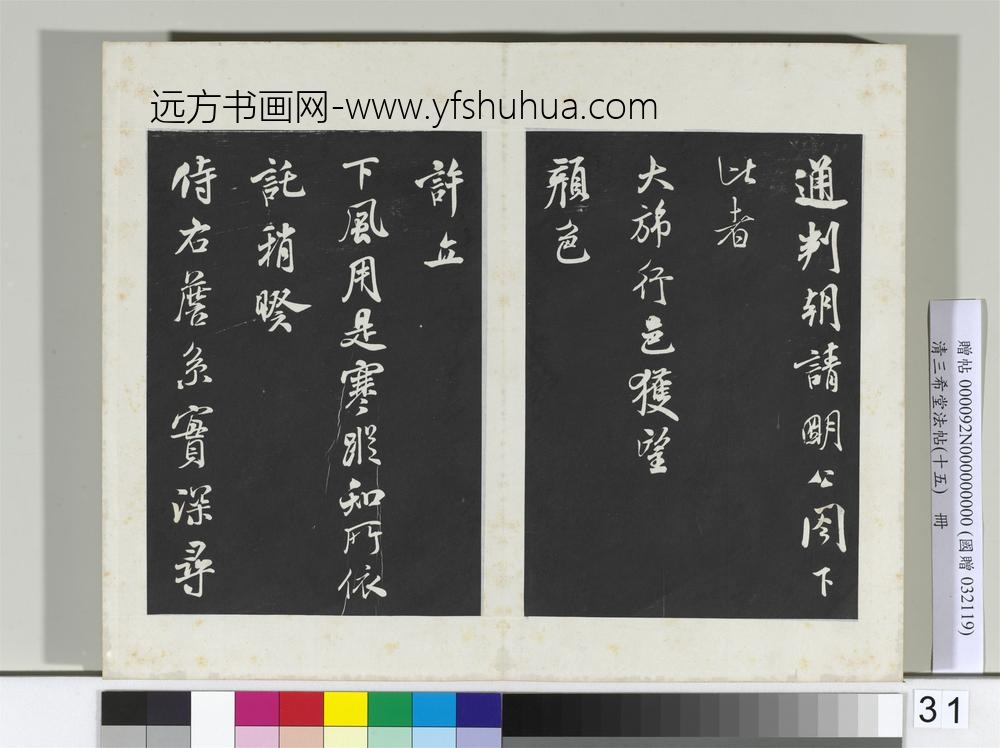 远方书画网-www.yfshuhua.com
通判朝請明公閣下
比者
大旆行邑獲望
顏色
許立
下風用是寒蹤知所依
託稍睽
侍右蘑系實深尋
贈帖 000092N000000000 (國贈 032119)
清三希堂法帖(十五) 冊
31